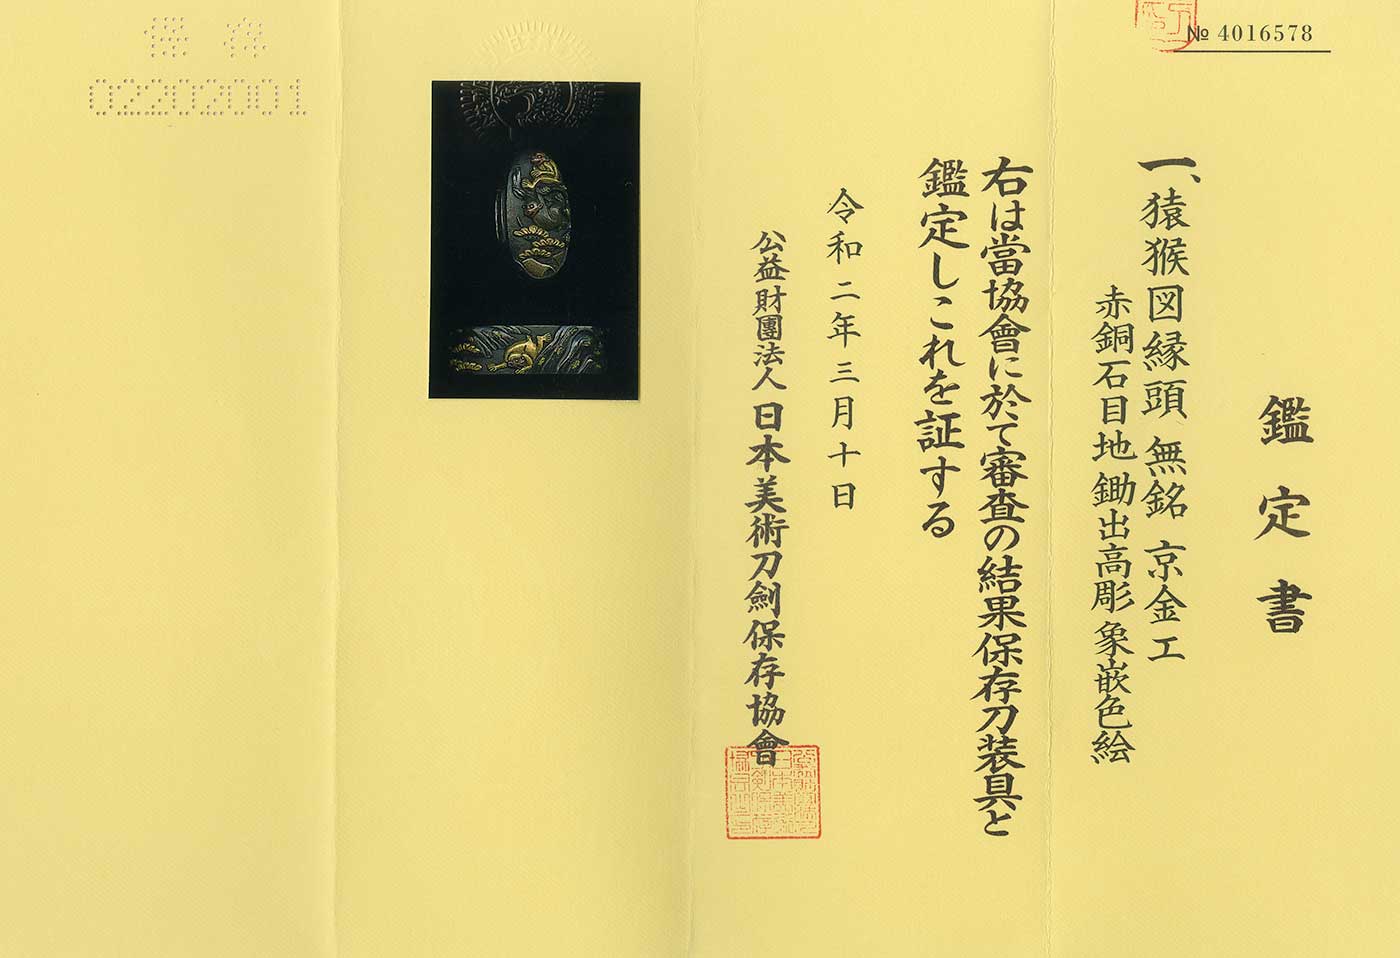 № 4016578
鑑定書
一、猿猴図縁頭 無銘 京金工
赤銅石目地鋤出高彫象嵌色絵
右は當協會に於て審査の結果保存刀装具と
鑑定しこれを証する
令和二年三月十日
公益財團法人 日本美術刀劍保存協會
保存
02202001